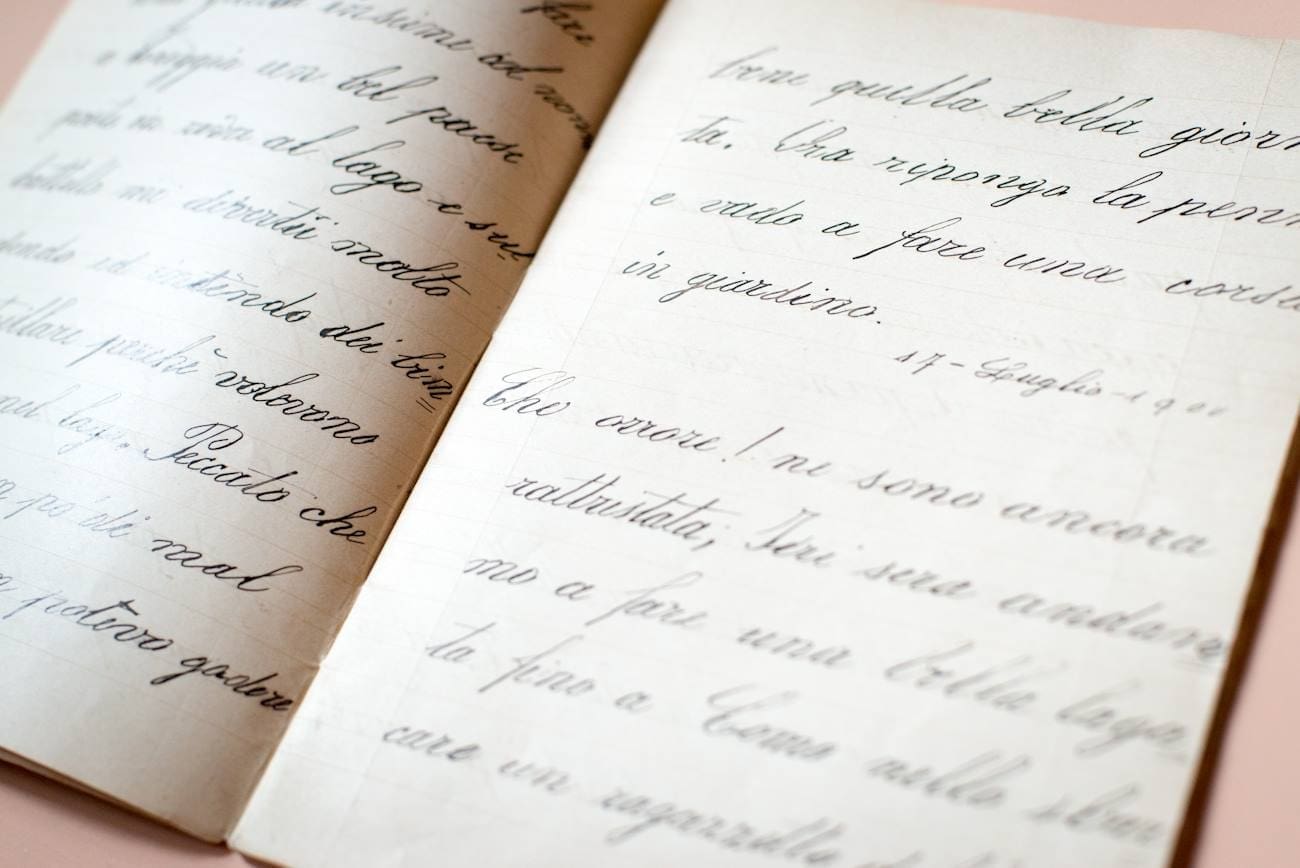 fare
insieme col nom
e beggio un bel paese
posto in riva al lago e sul
battello mi divertii molto
ed sentendo dei bim
strillare perchè volevono
nel lago. Peccato che
po' dei mal
potevo godere
bene quella bella giorn
ta. Ora ripongo la penn
e vado a fare una corsa
in giardino.
17 - Luglio - 1900
Che orrore! ne sono ancora
rattristata; Ieri sera andam
mo a fare una bella lago
ta fino a Como nello sbar
care un ragazzetto di